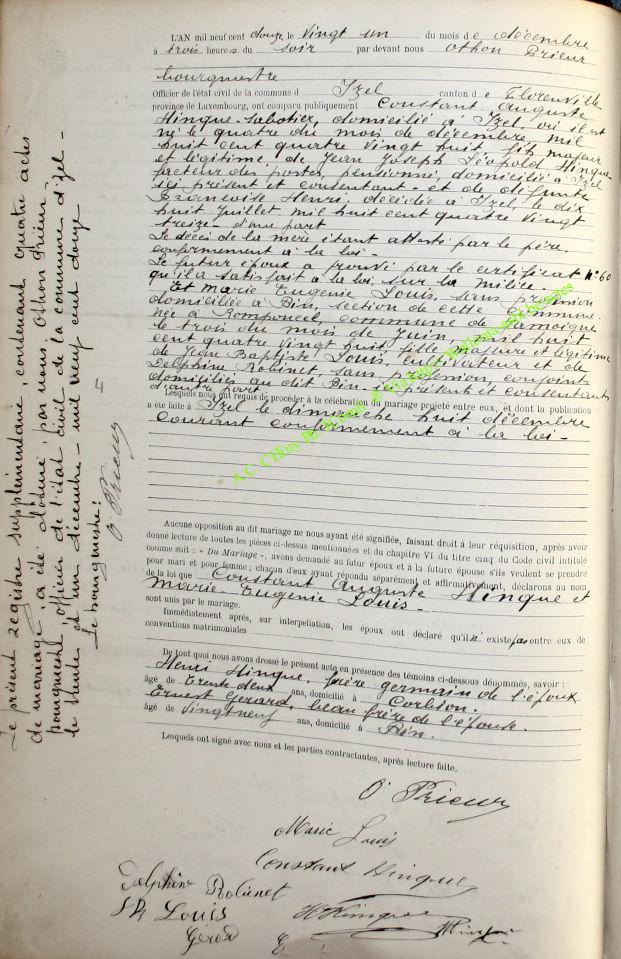 L'AN mil neuf cent douze, le vingt un du mois de décembre
à trois heures du soir par devant nous Othon Prieur
bourgmestre
Officier de l'état civil de la commune d Izel canton de Florenville
province de Luxembourg, ont comparu publiquement Constant Auguste
Hinque, sabotier, domicilié à Izel, où il est
né le quatre du mois de décembre, mil
huit cent quatre vingt huit, fils majeur
et légitime de Jean Joseph Léopold Hinque
facteur des postes, pensionné, domicilié à Izel
ici présent et consentant - et de défunte
Françoise Henri, décédée à Izel, le dix
huit Juillet, mil huit cent quatre vingt
treize - d'une part
Le décès de la mère étant attesté par le père
conformément à la loi -
Le futur époux a prouvé par le certificat N° 60
qu'il a satisfait à la loi sur la milice.
Et Marie Eugénie Louis, sans profession
domiciliée à Pin, section de cette commune.
née à Romponcel commune de Jamoigne
le trois du mois de Juin, mil huit
cent quatre vingt huit, fille majeure et légitime
de Jean Baptiste Louis, cultivateur et de
Delphine Robinet, sans profession, conjoints
domiciliés au dit Pin - ici présents et consentants
d'autre part
Lesquels nous ont requis de procéder à la célébration du mariage projeté entre eux, et dont la publication
a été faite à Izel le dimanche huit décembre
courant conformément à la loi -
Aucune opposition au dit mariage ne nous ayant été signifiée, faisant droit à leur réquisition, après avoir
donné lecture de toutes les pièces ci-dessus mentionnées et du chapitre VI du titre cinq du Code civil intitulé
comme suit : « Du Mariage », avons demandé au futur époux et à la future épouse s'ils veulent se prendre
pour mari et pour femme ; chacun d'eux ayant répondu séparément et affirmativement, déclarons au nom
de la loi que Constant Auguste Hinque et
Marie Eugénie Louis -
sont unis par le mariage.
Immédiatement après, sur interpellation, les époux ont déclaré qu'il n'existe pas entre eux de
conventions matrimoniales
De tout quoi nous avons dressé le présent acte en présence des témoins ci-dessous dénommés, savoir :
Henri Hinque, frère germain de l'époux
âgé de trente deux ans, domicilié à Corbion.
Ernest Gérard, beau frère de l'épouse.
âgé de Vingt neuf ans, domicilié à Pin.
Lesquels ont signé avec nous et les parties contractantes, après lecture faite.
O Prieur
Marie Louis
Constant Hinque
Delphine Robinet
Louis
H Hinque
Hinque
Gérard E
Le présent registre supplémentaire, contenant quatre actes
de mariage, a été clôturé par nous Othon Prieur
bourgmestre, officier de l'état civil de la commune d'Izel -
le trente et un décembre - mil neuf cent douze -
Le bourgmestre :
O Prieur